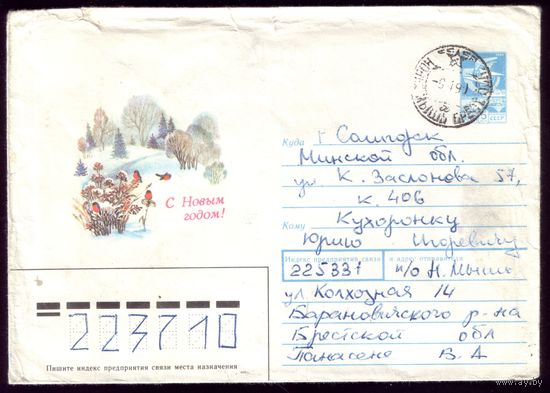 С Новым
годом!
СССР
Куда г. Солигорск
Минской обл.
ул. К. Заслонова 57,
к. 406
Кому Кухоронку
Юрию Игоревичу
Индекс предприятия связи и адрес отправителя
225331 п/о Н. Мышь
ул. Колхозная 14
Барановичского р-на
Брестской обл
Панасеня В. А
223710
Пишите индекс предприятия связи места назначения
www.ay.by